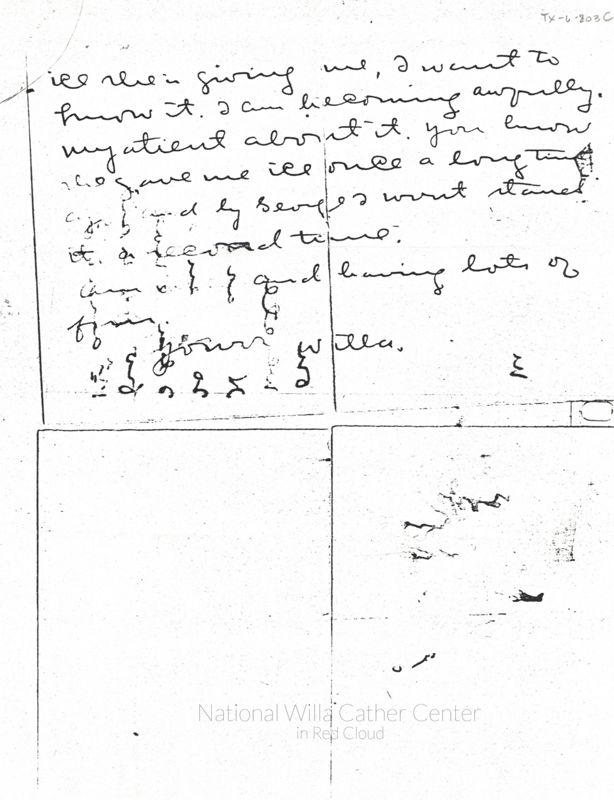 TX-6-803C
ice she is giving me, I want to
know it. I am becoming awfully
impatient about it. you know
she gave me ice once a long time
ago and by George I wont stand
it a second time.
and having lots of
fun.
yours Willa.
National Willa Cather Center
in Red Cloud